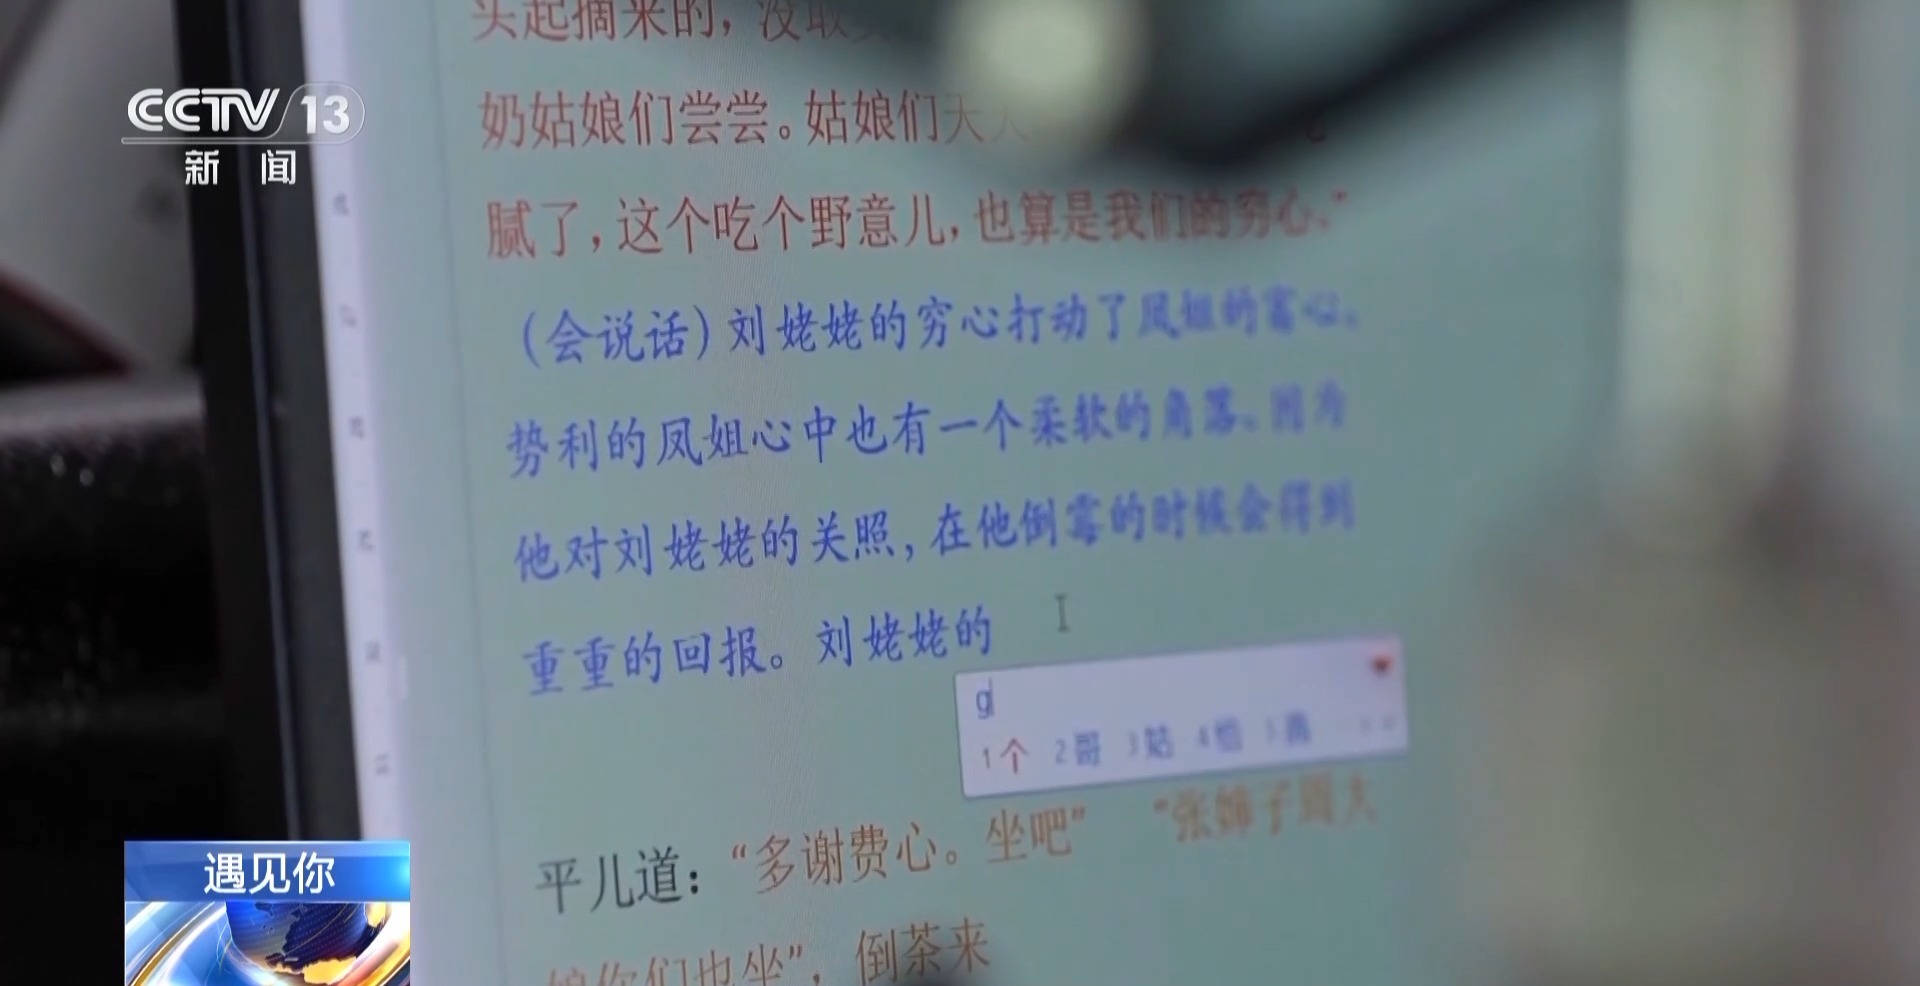 头起摘来的，没取
CCTV 13
新 闻
奶姑娘们尝尝。姑娘们天天
腻了，这个吃个野意儿，也算是我们的穷心。”
（会说话）刘姥姥的穷心打动了凤姐的富心。
势利的凤姐心中也有一个柔软的角落。因为
他对刘姥姥的关照，在他倒霉的时候会得到
重重的回报。刘姥姥的
g
1个 2哥 3姑 4给 5高
平儿道：“多谢费心。坐吧” “张婶子周大
娘你们也坐”，倒茶来
遇见你